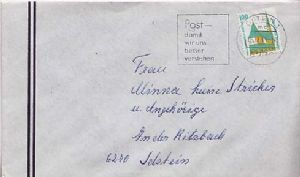 Post -
damit
wir uns
besser
verstehen
100
Frau
Minna
u. Angehörige
In der Ritzbach
6270 Idstein